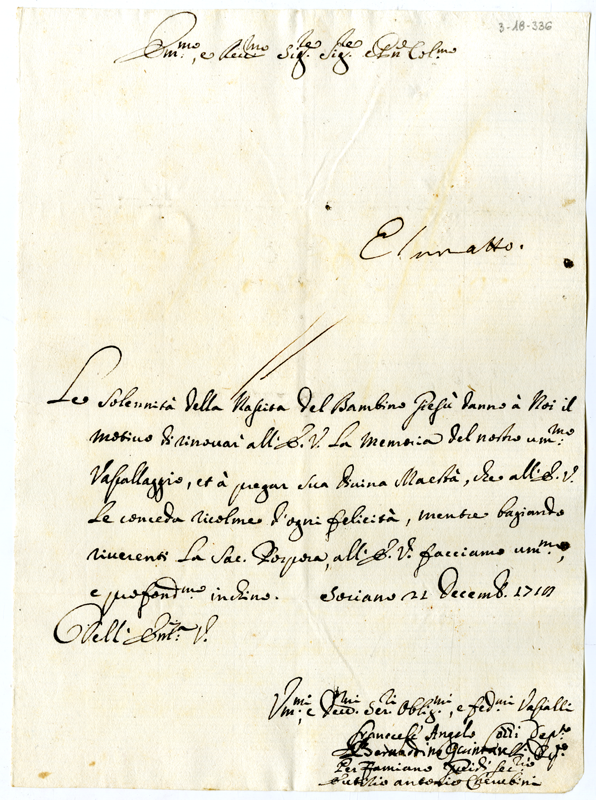 3-18-336
Em.mo, e Rev.mo Sig.re Sig.re e Pñ Col.mo
Le Solennità della Nascita del Bambino Giesù danno à Noi il
motivo di rinovar all'E.V. La Memoria del nostro um.mo
Vassallaggio, et à pregar Sua Divina Maestà, che all'E.V.
Le conceda ricolme d'ogni felicità, mentre bagiando
riverenti La Sac. Porpora, all'E.V. facciamo um.mo,
e profond.mo inchino. Soriano 21 Decemb.
Dell' Em.za V.
Um.mi e Dev.mi Ser.ti Oblig.mi, e fed.mi Vassalli
Francesco Angelo
Bernardino Quintarelli
antonio